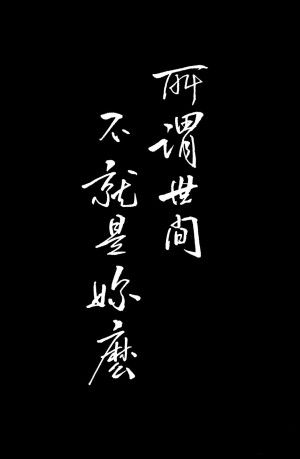 所謂世間
不就是妳麼